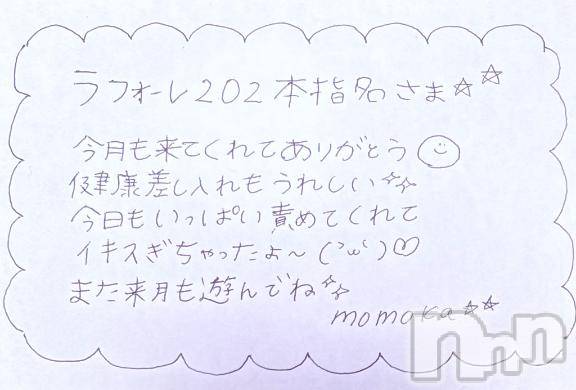 ラフォーレ202本指名さま☆☆
今月も来てくれてありがとう
健康差し入れもうれしい
今日もいっぱい責めてくれて
イキスぎちゃったよ〜(´ω`)♡
また来月も遊んでね
momoka☆☆
nnn